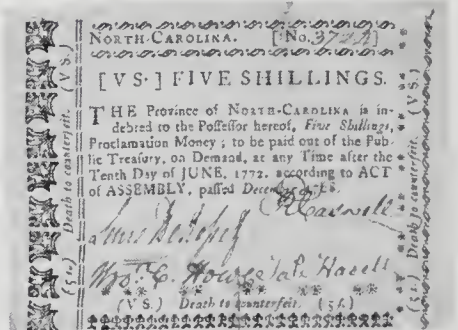 NORTH-CAROLINA. [No. 3722]
[VS.] FIVE SHILLINGS.
THE Province of NORTH-CAROLINA is in-
debted to the Possessor hereof, Five Shillings,
Proclamation Money; to be paid out of the Pub-
lic Treasury, on Demand, at any Time after the
Tenth Day of JUNE, 1772. according to ACT
of ASSEMBLY, passed December 1768.
R Caswell
Lewis De Rosset
Wm. C. Howe
(VS.) Death to counterfeit. (5s.)
(5s.) Death to counterfeit. (VS.)
(5s.) Death to counterfeit. (VS.)